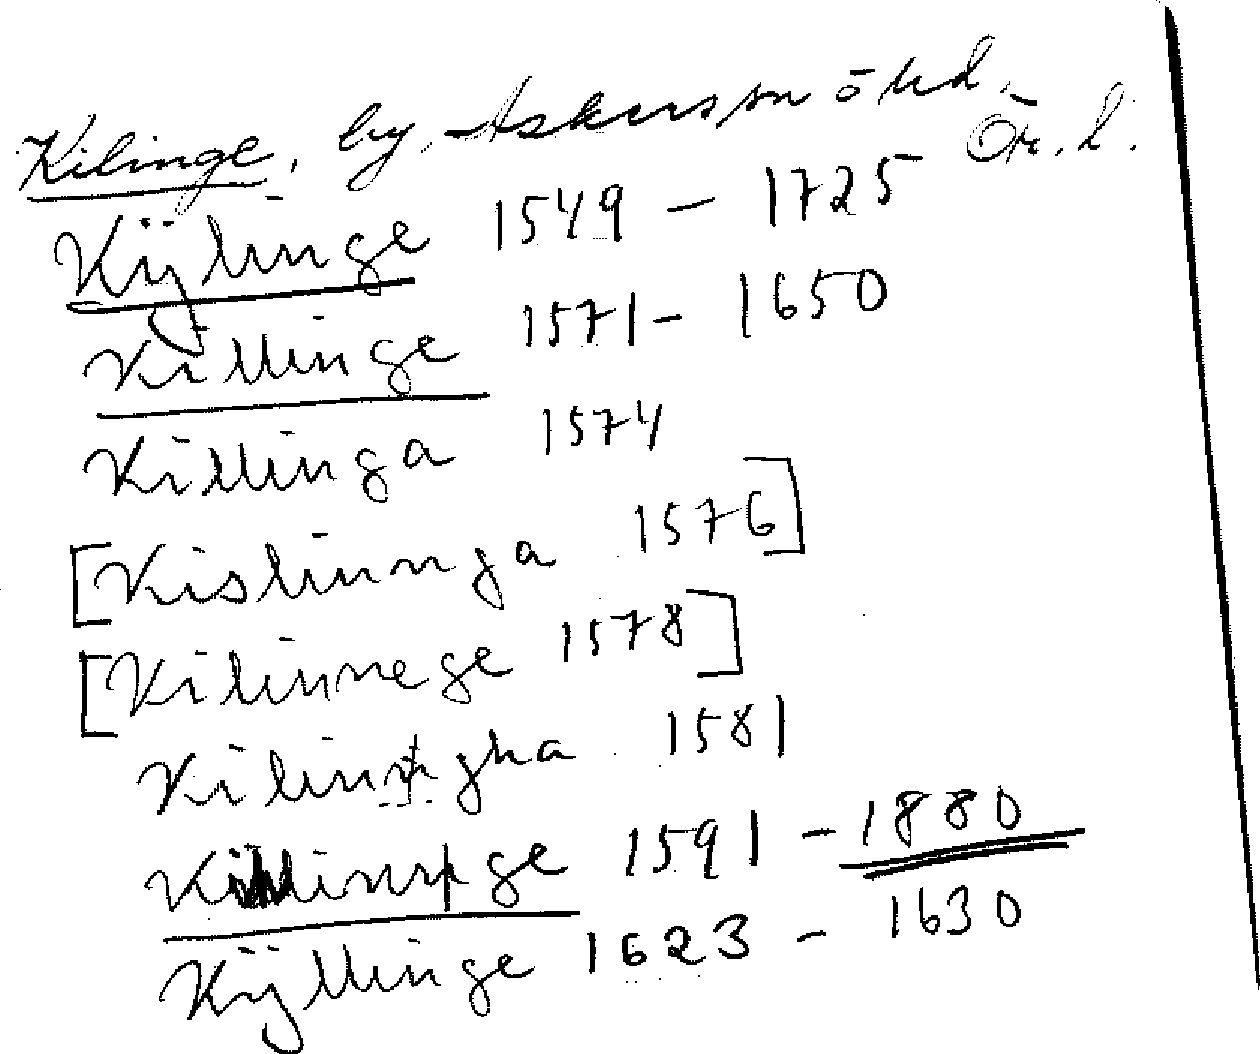 Kilinge, by, Askersunds hd, Ör. l.
Kijlinge 1549 – 1725
Killinge 1571 – 1650
Killinga 1574
[Kislinnga 1576]
[Kilinnege 1578]
Kilingha 1581
Kilinge 1591 – 1880
Kijllinge 1623 – 1630